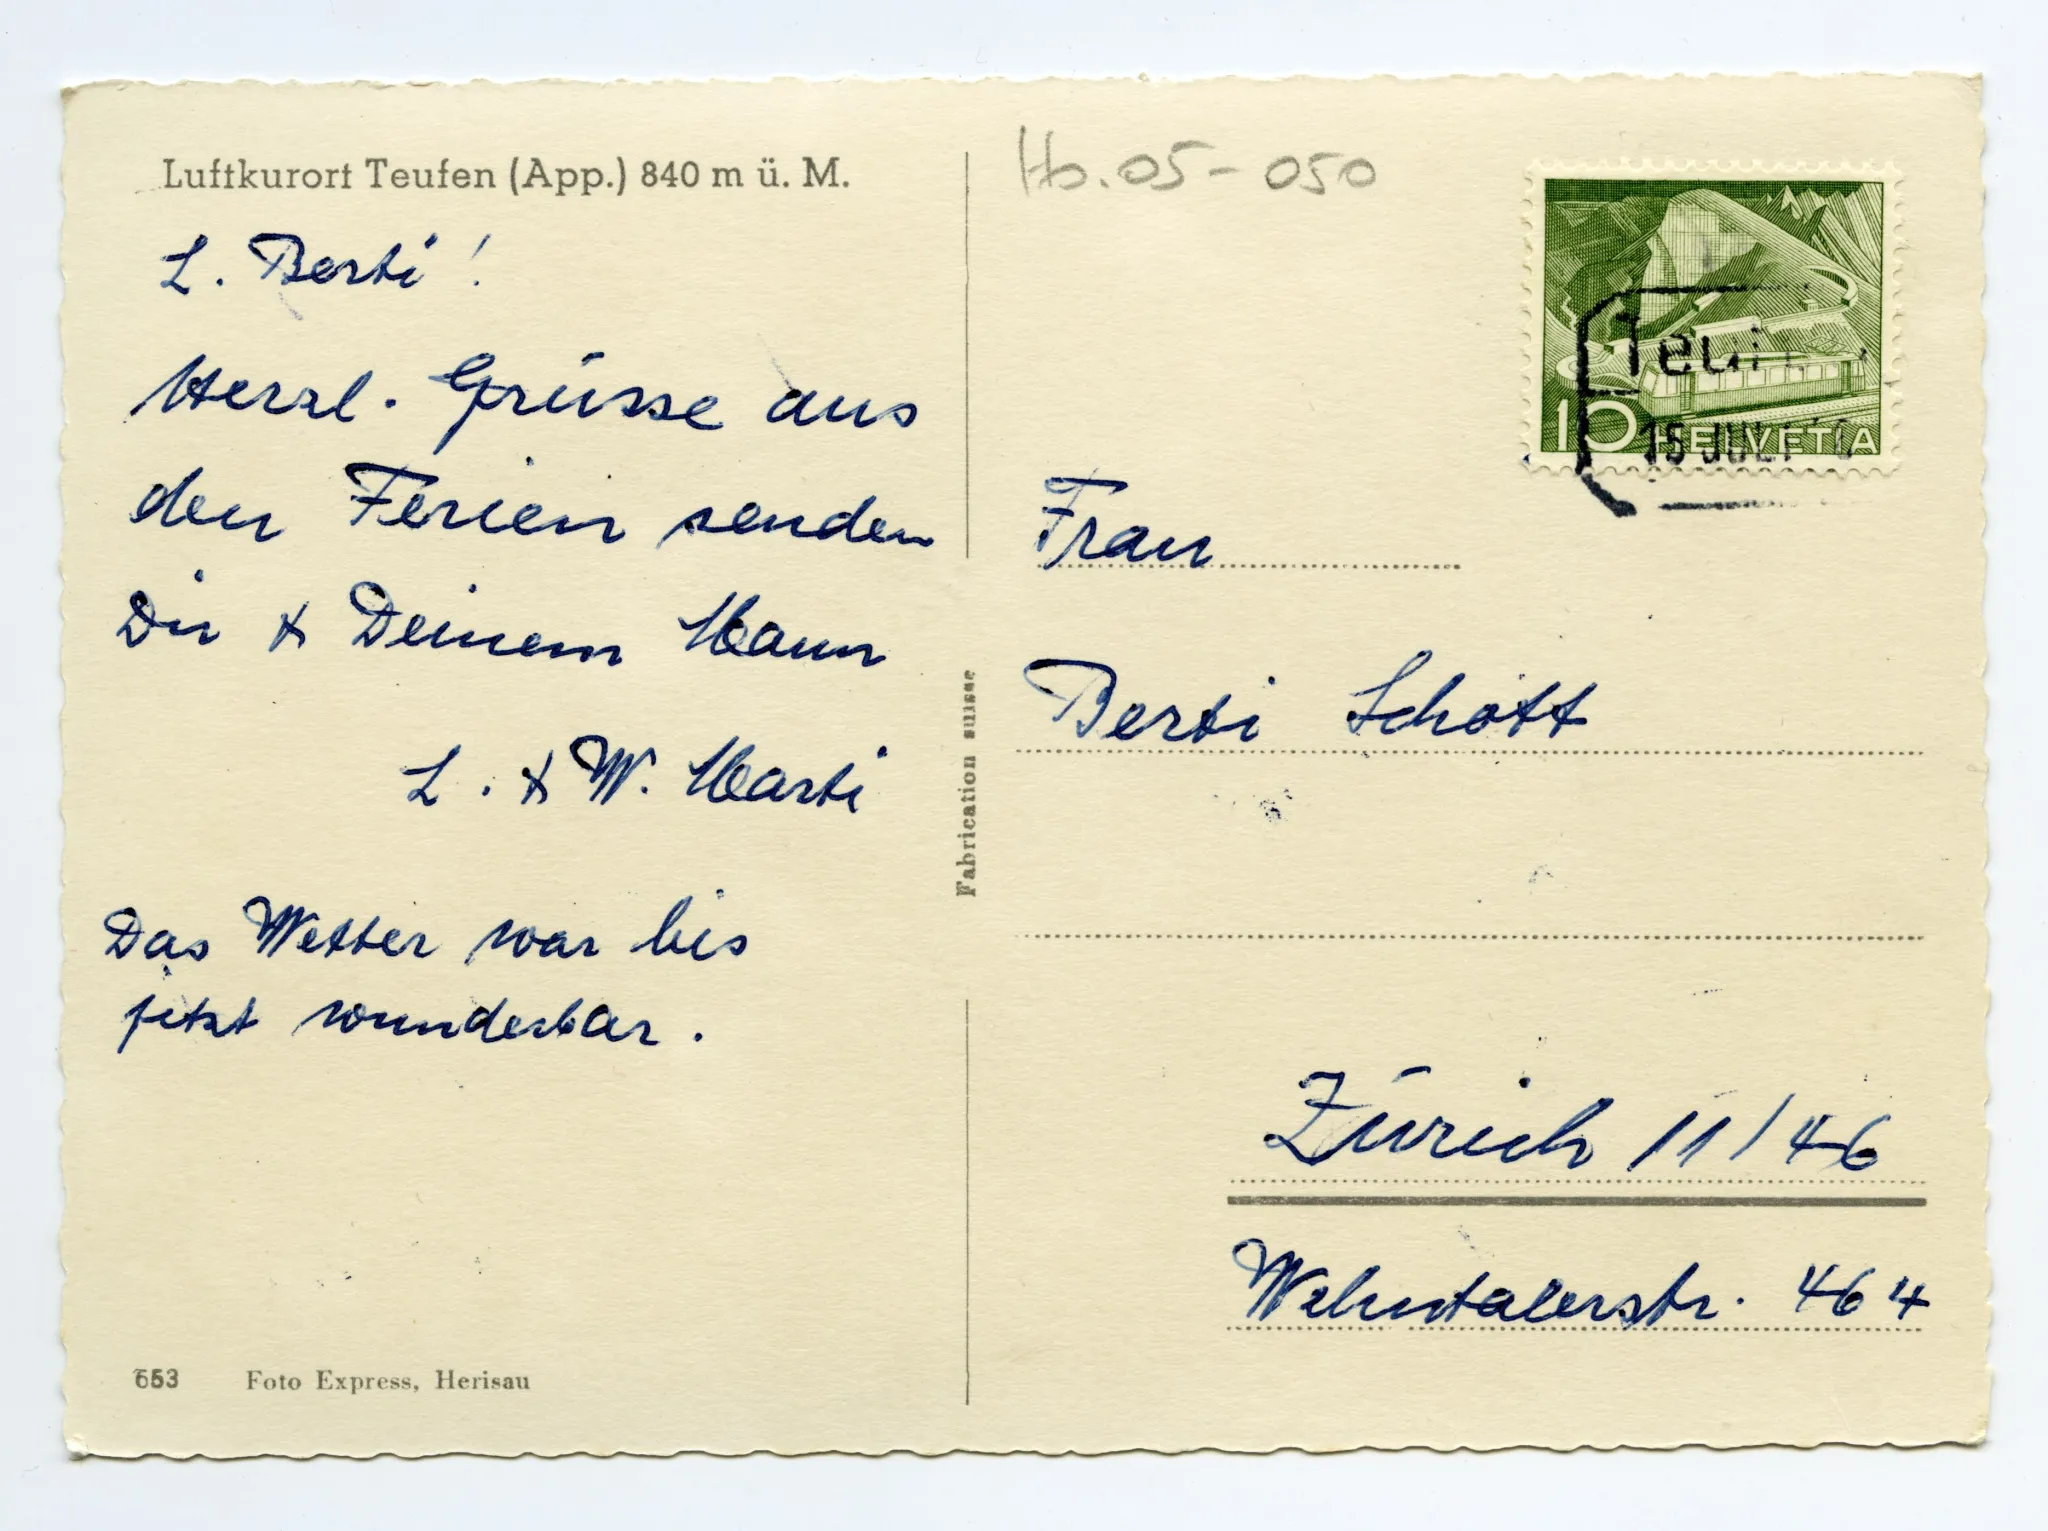 Luftkurort Teufen (App.) 840 m ü. M.
L. Berti!
Herzl. Grüsse aus
den Ferien senden
Dir & Deinem Mann
L. & W. Marti
Das Wetter war bis
jetzt wunderbar.
653 Foto Express, Herisau
Fabrication suisse
Hb.05-050
10 HELVETIA
15 JULI
Frau
Berti Schott
Zürich 11/46
Wehntalerstr. 464